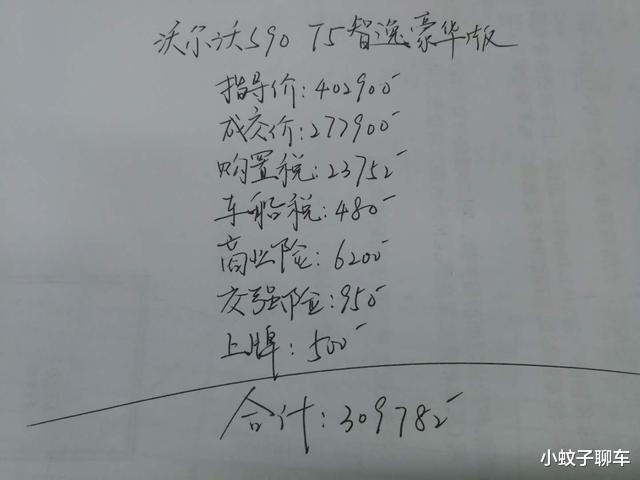 沃尔沃S90 T5智逸豪华版
指导价:402900
成交价:277900
购置税:23752
车船税:480
商业险:6200
交强险:950
上牌:500
合计:309782
小蚊子聊车